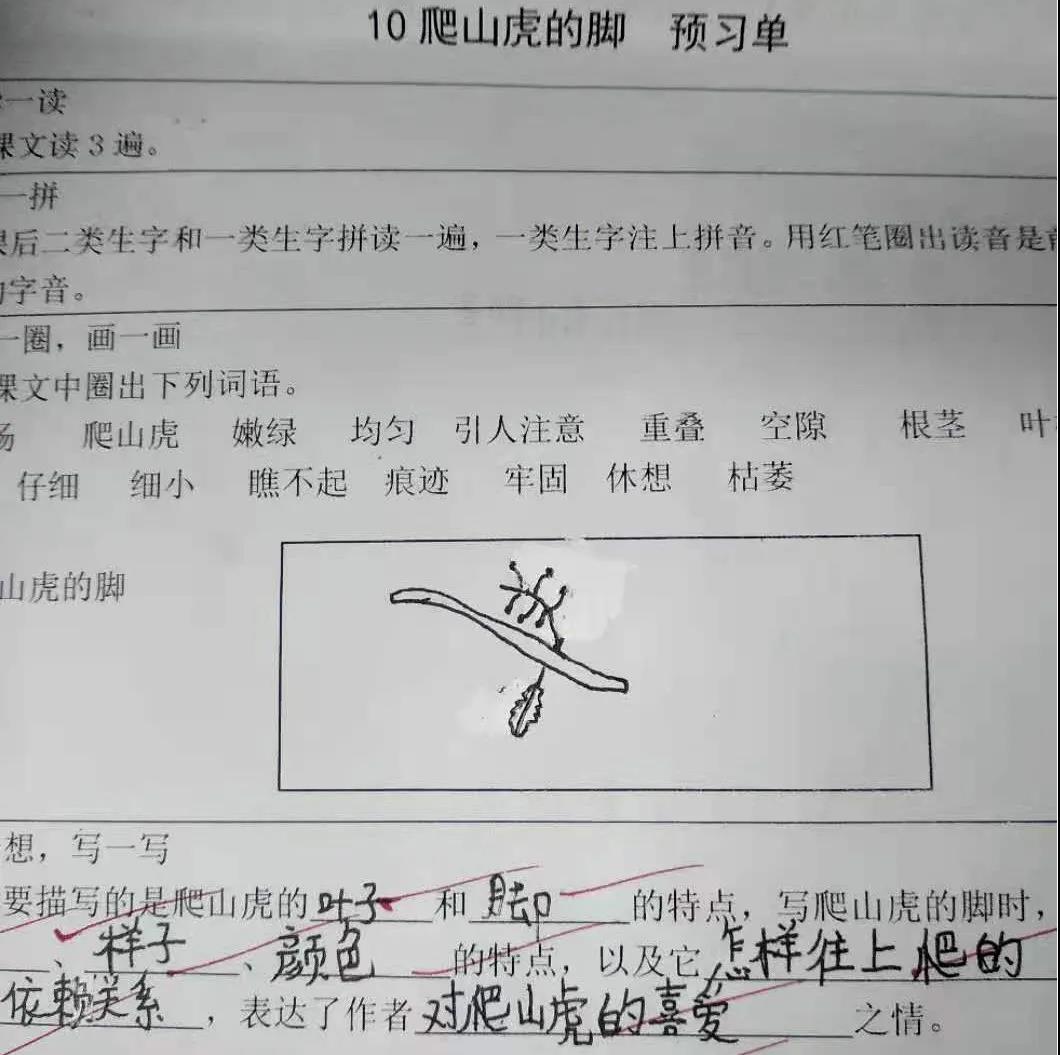 10 爬山虎的脚 预习单
一读
课文读 3 遍。
一拼
后二类生字和一类生字拼读一遍，一类生字注上拼音。用红笔圈出读音是
字音。
一圈，画一画
课文中圈出下列词语。
爬山虎 嫩绿 均匀 引人注意 重叠 空隙 根茎 叶
仔细 细小 瞧不起 痕迹 牢固 休想 枯萎
山虎的脚
想，写一写
要描写的是爬山虎的叶子和脚的特点，写爬山虎的脚时，
、样子、颜色的特点，以及它怎样往上爬的
依赖关系，表达了作者对爬山虎的喜爱之情。